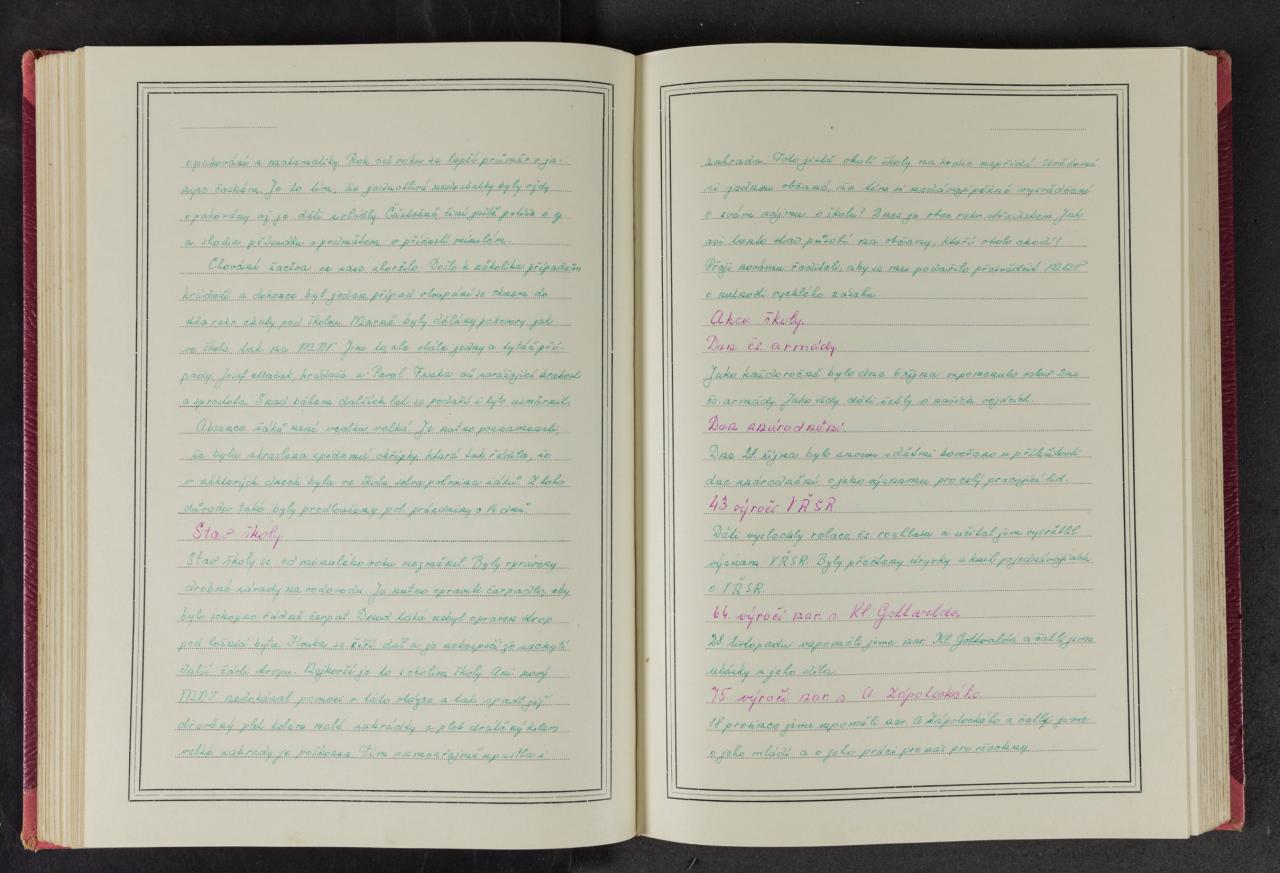 opakování z matematiky. Rok od roku se lepší průměr v ja-
zyce českém. Je to tím, že jednotlivé nedostatky byly vždy
opakovány až je děti zvládly. Částečně činí ještě potíže i y
a shoda přísudku s podmětem v příčestí minulém.
Chování žactva se zase zhoršilo. Došlo k několika případům
krádeží a dokonce byl jeden případ vloupání se oknem do
chaty pod školou. Marné byly důtky pohovory jak
ve škole tak na MNV. Jsou to, ale stále jedny a tytéž pří-
pady. Josef krádeže a Pavel až zarážející hrubost
a sprostota. Snad během dalších let se podaří i tyto usměrnit.
Absence žáků není vcelku velká. Je nutno poznamenat,
že byla zkreslena epidemií chřipky, která tak řádila, že
v některých dnech byla ve škole sotva polovina žáků. Z toho
důvodu také byly prodlouženy pol. prázdniny o 14 dnů.
Stav školy
Stav školy se od minulého roku nezměnil. Byly opraveny
drobné závady na vodovodu. Je nutno opraviti čerpadlo, aby
bylo schopno řádně čerpat. Dosud také nebyl opraven strop
pod ložnicí bytu. Houba se šíří dál a je nebezpečí že zachytí
další části stropu. Nejhorší je to s okolím školy. Ani nový
MNV nedokázal pomoci v této otázce a tak opadl již
dřevěný plot kolem malé zahrádky a plot drátěný kolem
velké zahrady je poškozen. Tím samozřejmě zpustla i
zahrada. Toto jistě okolí školy na kráse nepřidá. Uvědomí
si jednou občané, že tím si nedávají pěkné vysvědčení
o svém zájmu o školu? Dnes je obec celá střediskem. Jak
asi tento stav působí na občany, kteří okolo chodí?
Přeji novému řediteli, aby se mu podařilo přesvědčit MNV
o nutnosti rychlého zásahu.
Akce školy.
Den čs. armády.
Jako každoročně bylo dne 6 října vzpomenuto oslav Dne
čs. armády. Jako vždy děti četly o našich vojácích.
Den znárodnění.
Dne 28. října bylo znovu s dětmi hovořeno u příležitosti
dne znárodnění o jeho významu pro celý pracující lid.
43 výročí VŘSR
Děti vyslechly relace čs. rozhlasu a učitel jim vysvětlil
význam VŘSR. Byly přečteny úryvky z knih pojednávajících
o VŘSR.
64. výročí nar. s. Kl Gottwalda
28 listopadu vzpomněli jsme nar. Kl. Gottwalda a četli jsme
ukázky z jeho díla.
75 výročí nar. s A Zápotockého.
18 prosince jsme vzpomněli nar. A Zápotockého a četli jsme
o jeho mládí a o jeho práci pro nás pro všechny.